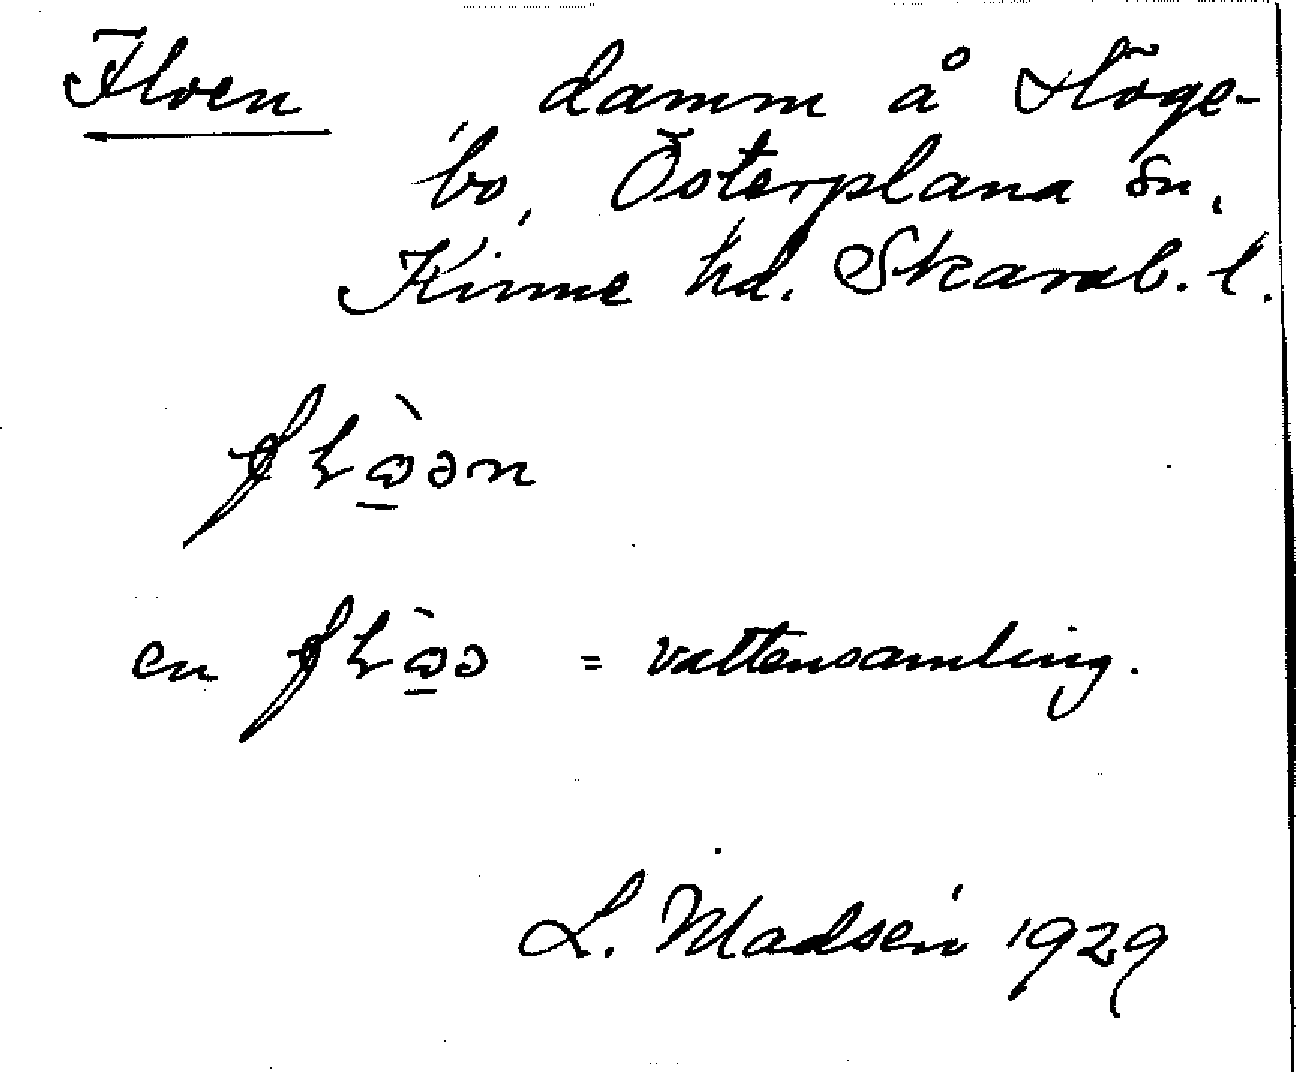 Floen damm å Höge-
bo, Österplana sn,
Kinne hd. Skarab. l.
en = vattensamling.
L. Madsén 1929